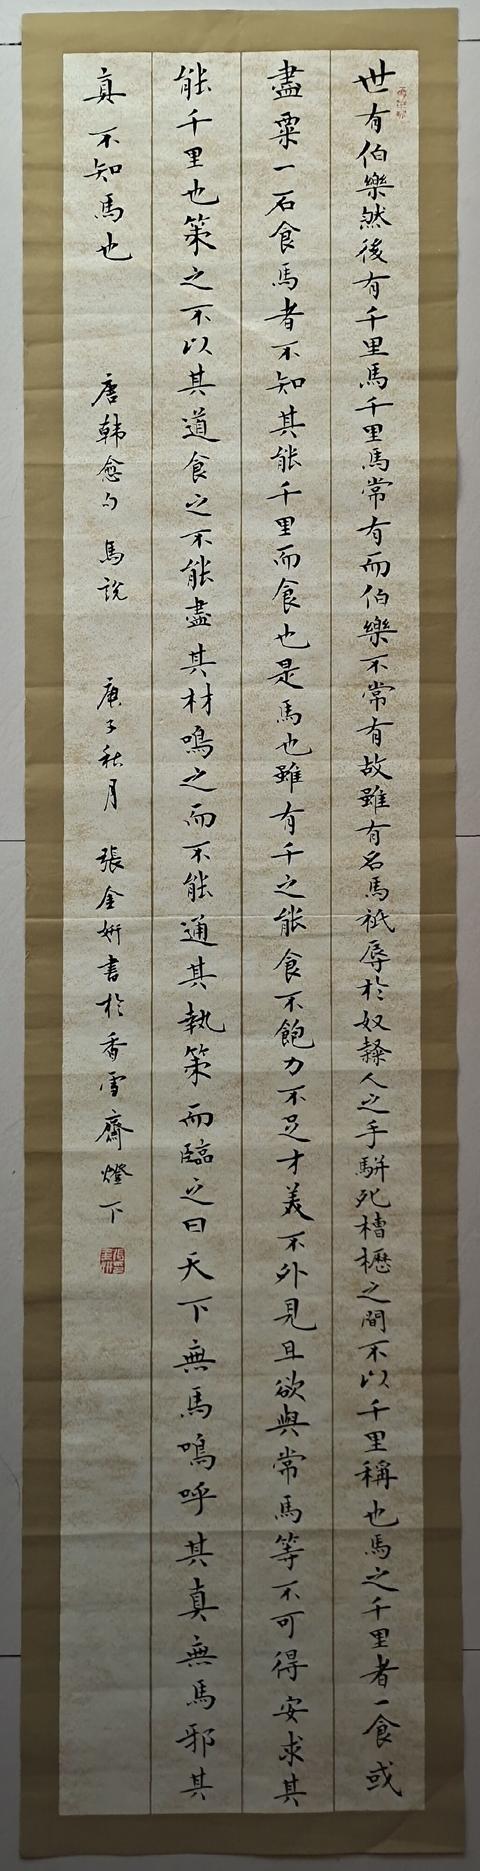 世有伯樂然後有千里馬千里馬常有而伯樂不常有故雖有名馬祇辱於奴隸人之手駢死槽櫪之間不以千里稱也馬之千里者一食或
盡粟一石食馬者不知其能千里而食也是馬也雖有千之能食不飽力不足才美不外見且欲與常馬等不可得安求其
能千里也策之不以其道食之不能盡其材鳴之而不能通其執策而臨之曰天下無馬嗚呼其真無馬邪其
真不知馬也 唐韓愈句 馬說 庚子秋月 張金妍書於香雪齋燈下